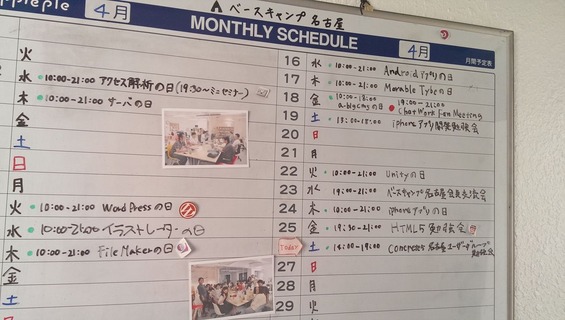 appleple
4月
ベースキャンプ名古屋
MONTHLY SCHEDULE
4月
月間予定表
火
水 10:00-21:00 アクセス解析の日(19:30~ミニセミナー)
木 10:00-21:00 サーバの日
金
土
日
月
火 10:00-21:00 WordPressの日
水 10:00-21:00 イラストレーターの日
木 10:00-21:00 FileMakerの日
金
土
16 水 10:00-21:00 Androidアプリの日
17 木 10:00-21:00 Movable Typeの日
18 金 10:00-18:00 a-blog cmsの日 19:00-21:00 ChatWork Fan Meeting
19 土 13:00-18:00 iphoneアプリ開発勉強会
20 日
21 月
22 火 10:00-21:00 Unityの日
23 水 19:00-21:00 ベースキャンプ名古屋会員交流会
24 木 10:00-21:00 iphoneアプリの日
25 金 19:30-21:00 HTML5
Today 土 14:00-19:00 Concrete5名古屋ユーザーグループ勉強会
27 日
28 月
29 火